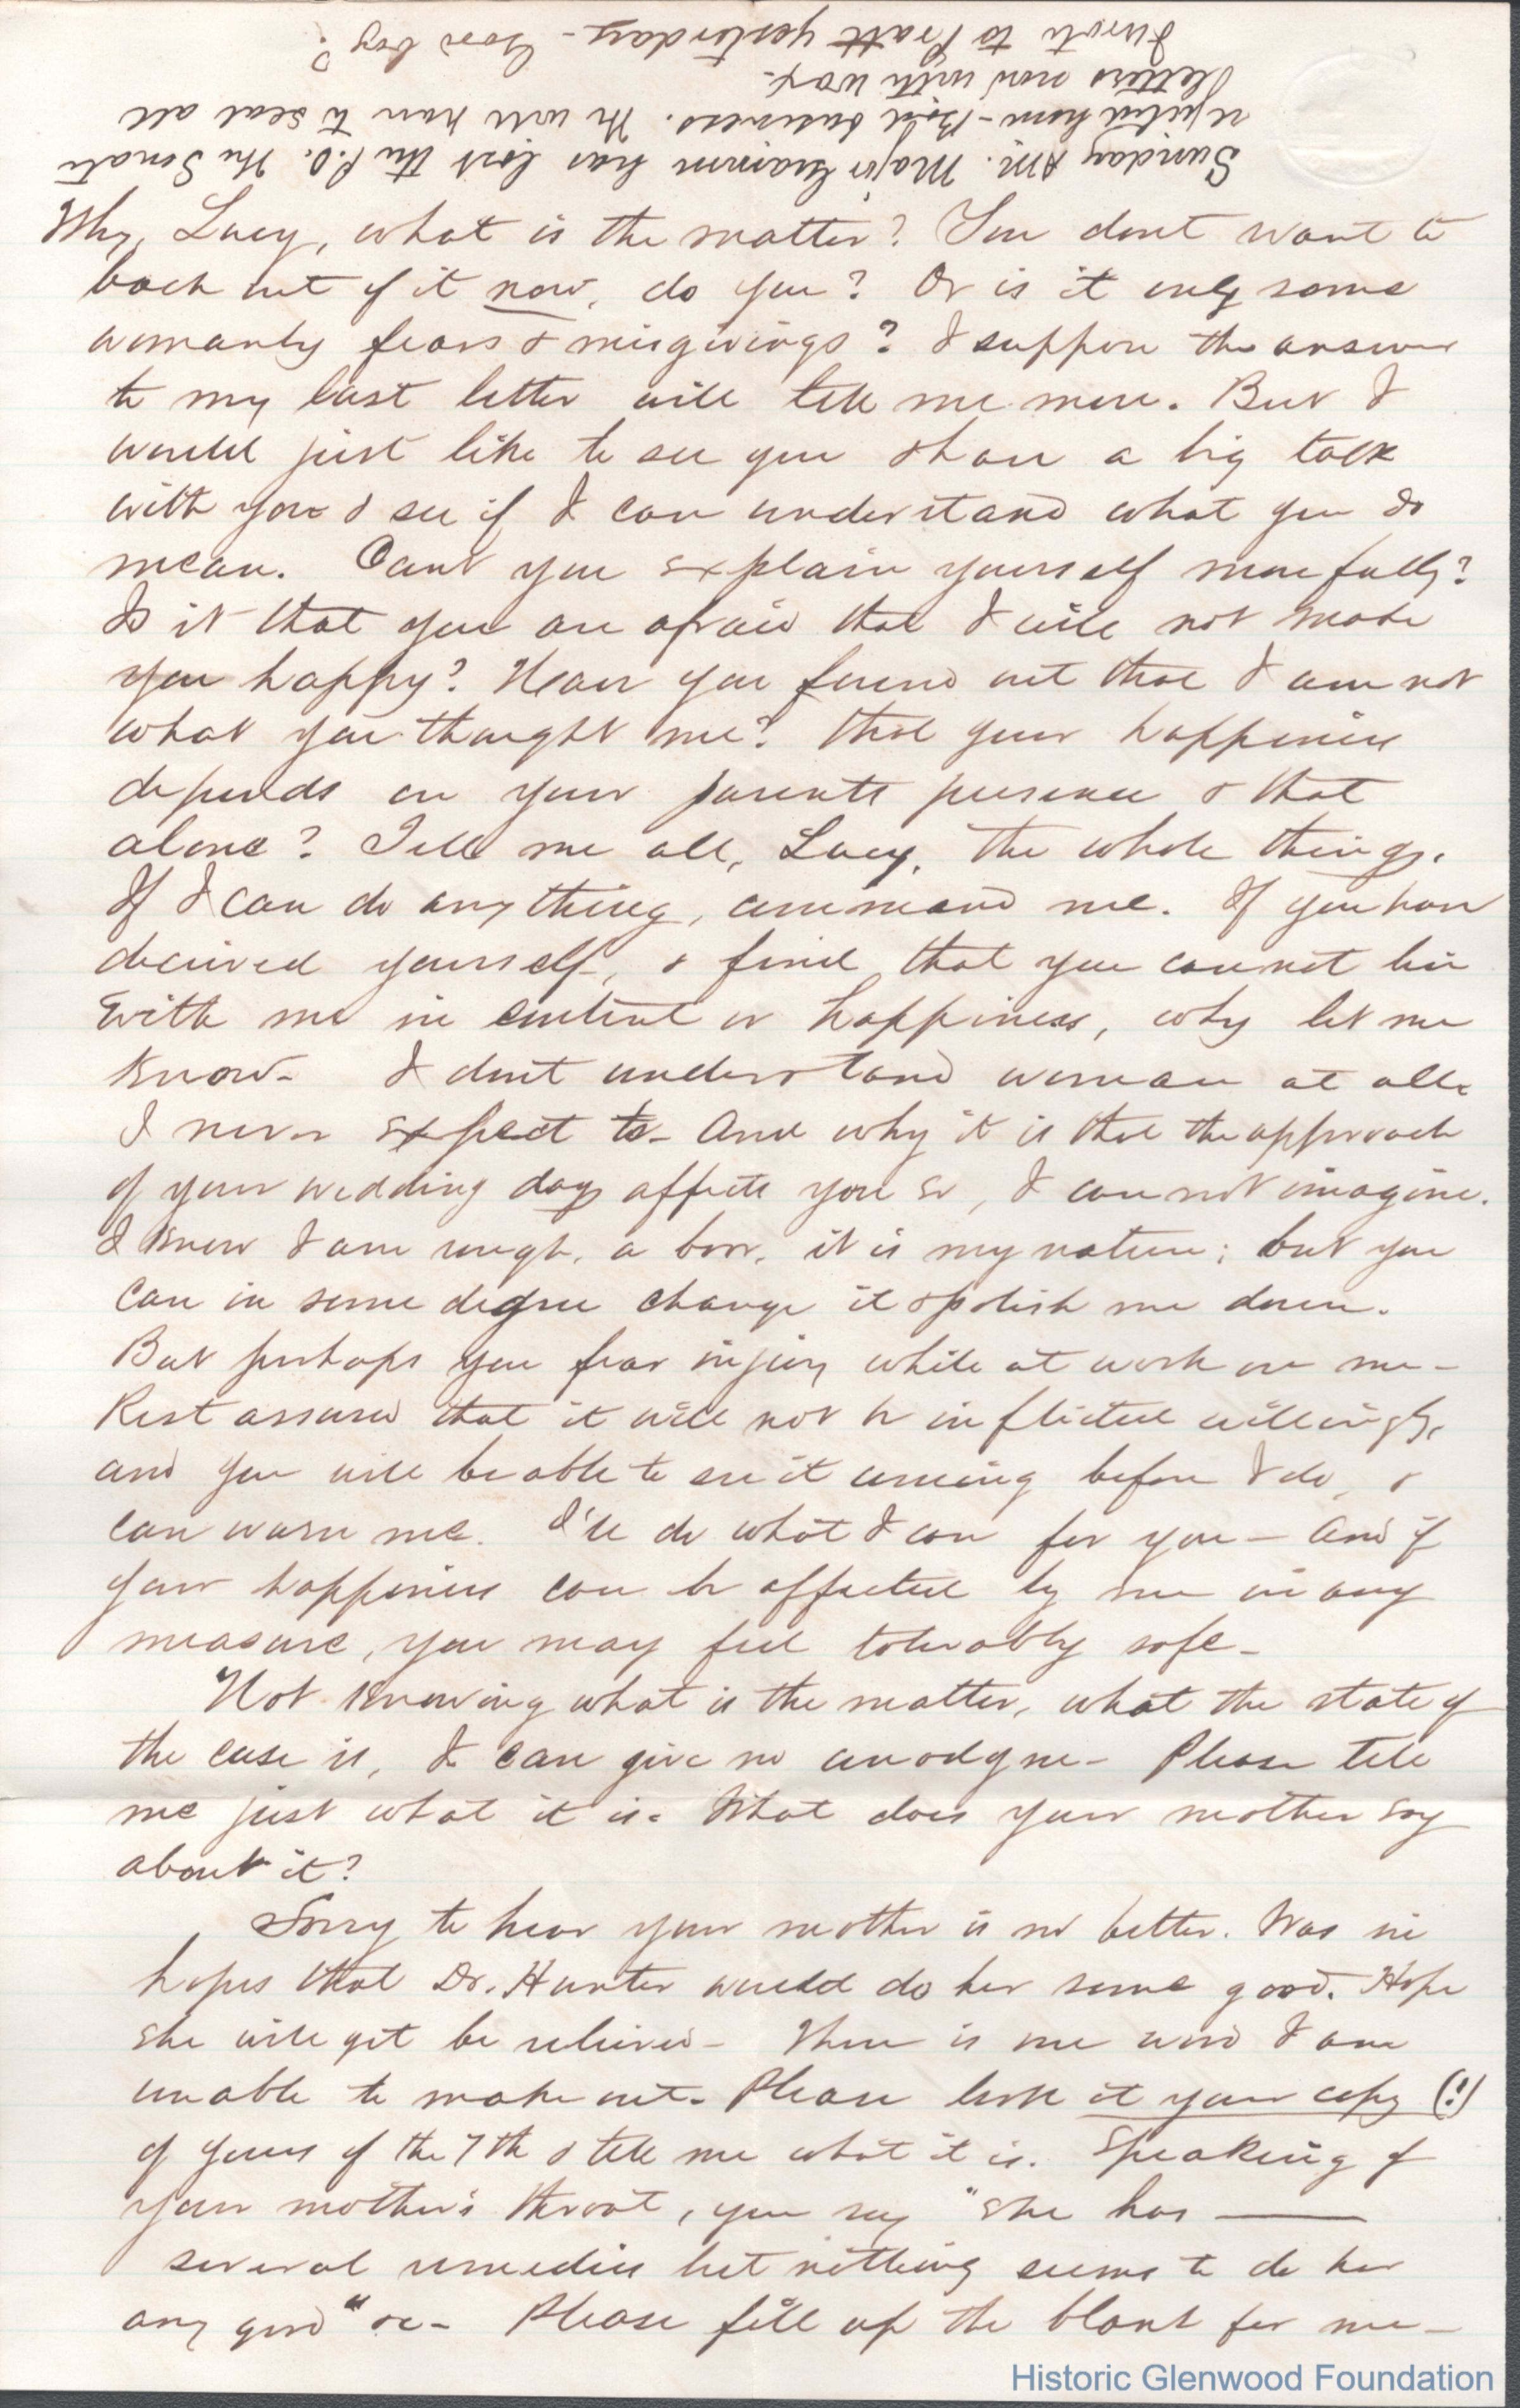 Sunday AM. Major has lost the P.O. The Senate
rejected him - Bad business. He will have to seal all
letters now with wax.
I wrote to Pratt yesterday - Good boy?
Why, Lucy, what is the matter? You dont want to
back out of it now, do you? Or is it only some
womanly fears & misgivings? I suppose the answer
to my last letter will tell me more. But I
would just like to see you & have a big talk
with you & see if I can understand what you do
mean. Cant you explain yourself more fully?
Is it that you are afraid that I will not make
you happy? Have you found out that I am not
what you thought me? that your happiness
depends on your parents presence & that
alone? Tell me all, Lucy, the whole thing.
If I can do any thing, command me. If you have
deceived yourself, & find that you cannot live
with me in content or happiness, why let me
know - I dont understand woman at all.
I never expect to - And why it is that the approach
of your wedding day affects you so, I can not imagine.
I know I am rough, a boor, it is my nature; but you
can in some degree change it & polish me down.
But perhaps you fear injury while at work on me -
Rest assured that it will not be inflicted willingly,
and you will be able to see it coming before I do, &
can warn me. I'll do what I can for you - And if
your happiness can be affected by me in any
measure, you may feel tolerably safe -
Not knowing what is the matter, what the state of
the case is, I can give no anodyne - Please tell
me just what it is. What does your mother say
about it?
Sorry to hear your mother is no better. Was in
hopes that Dr. Hunter would do her some good. Hope
she will yet be relieved - There is one word I am
unable to make out. Please look at your copy (!)
of yours of the 7th & tell me what it is. Speaking of
your mother's throat, you say "She has ——
several remedies but nothing seems to do her
any good" &c - Please fill up the blank for me -
Historic Glenwood Foundation